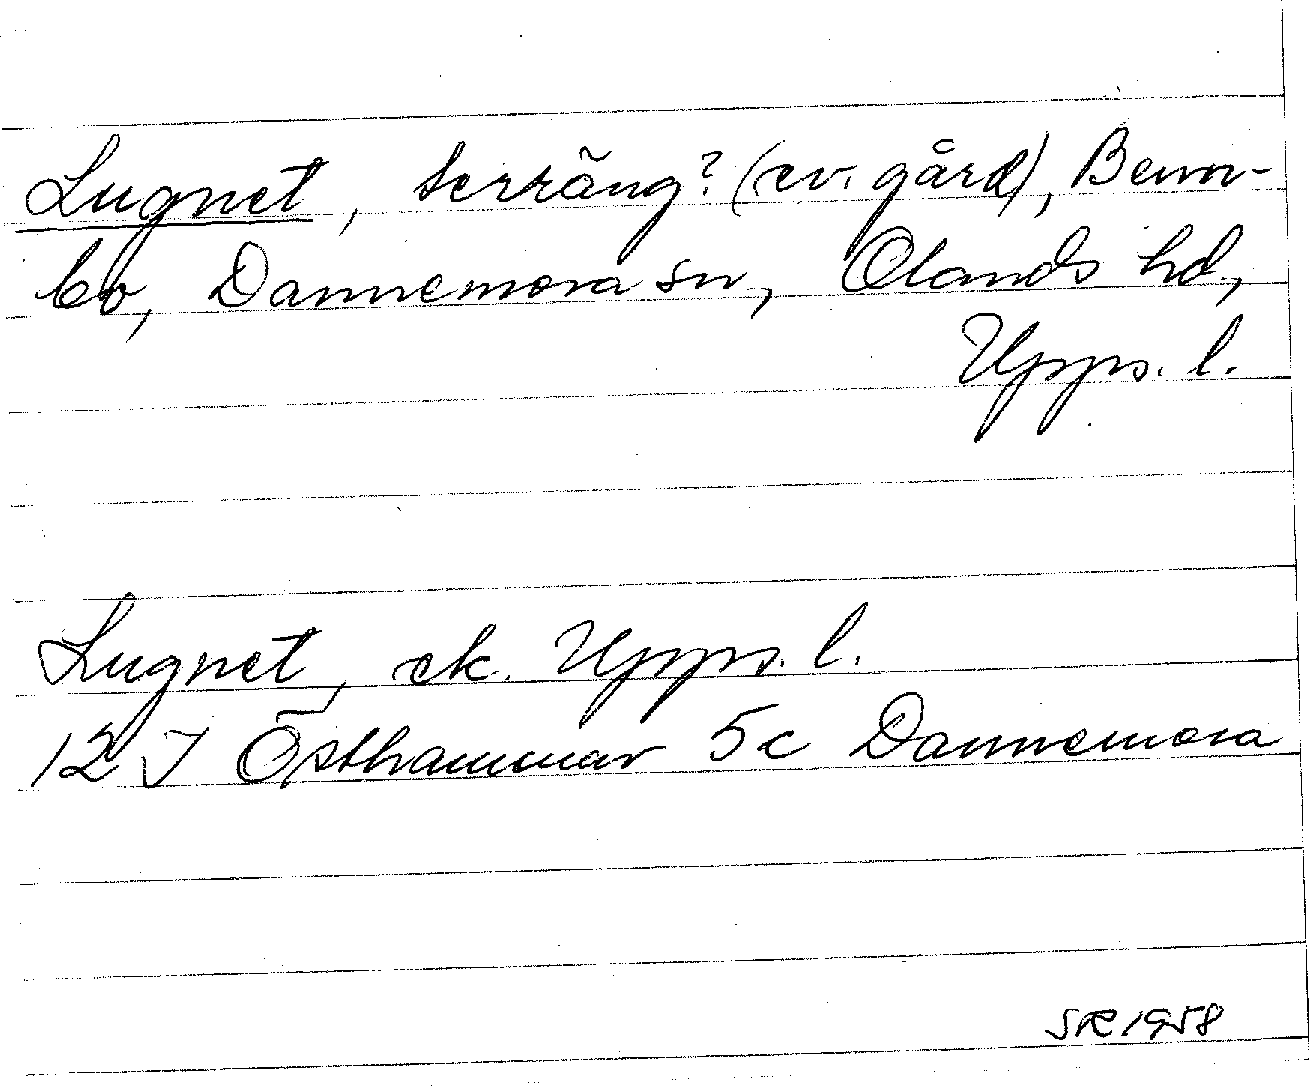 Lugnet, terräng? (ev. gård), Benn-
bo, Dannemora sn, Olands hd,
Upps. l.
Lugnet, ek. Upps. l.
12 I Östhammar 5c Dannemora
SR 1958